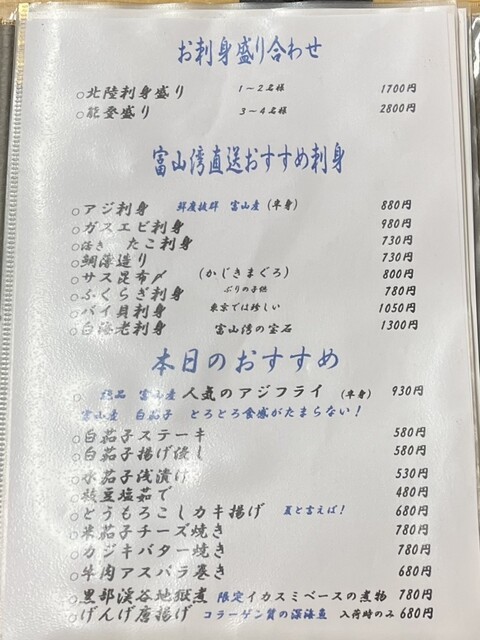 お刺身盛り合わせ
○北陸刺身盛り 1～2名様 1700円
○能登盛り 3～4名様 2800円
富山湾直送おすすめ刺身
○アジ刺身 鮮度抜群 富山産（半身） 880円
○ガスエビ刺身 980円
○活き たこ刺身 730円
○鯛薄造り 730円
○サス昆布〆 （かじきまぐろ） 800円
○ふくらぎ刺身 ぶりの子供 780円
○バイ貝刺身 東京では珍しい 1050円
○白海老刺身 富山湾の宝石 1300円
本日のおすすめ
○ 絶品 富山産 人気のアジフライ （半身） 930円
富山産 白茄子 とろとろ食感がたまらない！
○白茄子ステーキ 580円
○白茄子揚げ浸し 580円
○水茄子浅漬け 530円
○枝豆塩茹で 480円
○とうもろこしカキ揚げ 夏と言えば！ 680円
○米茄子チーズ焼き 780円
○カジキバター焼き 780円
○牛肉アスパラ巻き 680円
○黒部渓谷地獄煮 限定イカスミベースの煮物 780円
○げんげ唐揚げ コラーゲン質の深海魚 入荷時のみ 680円